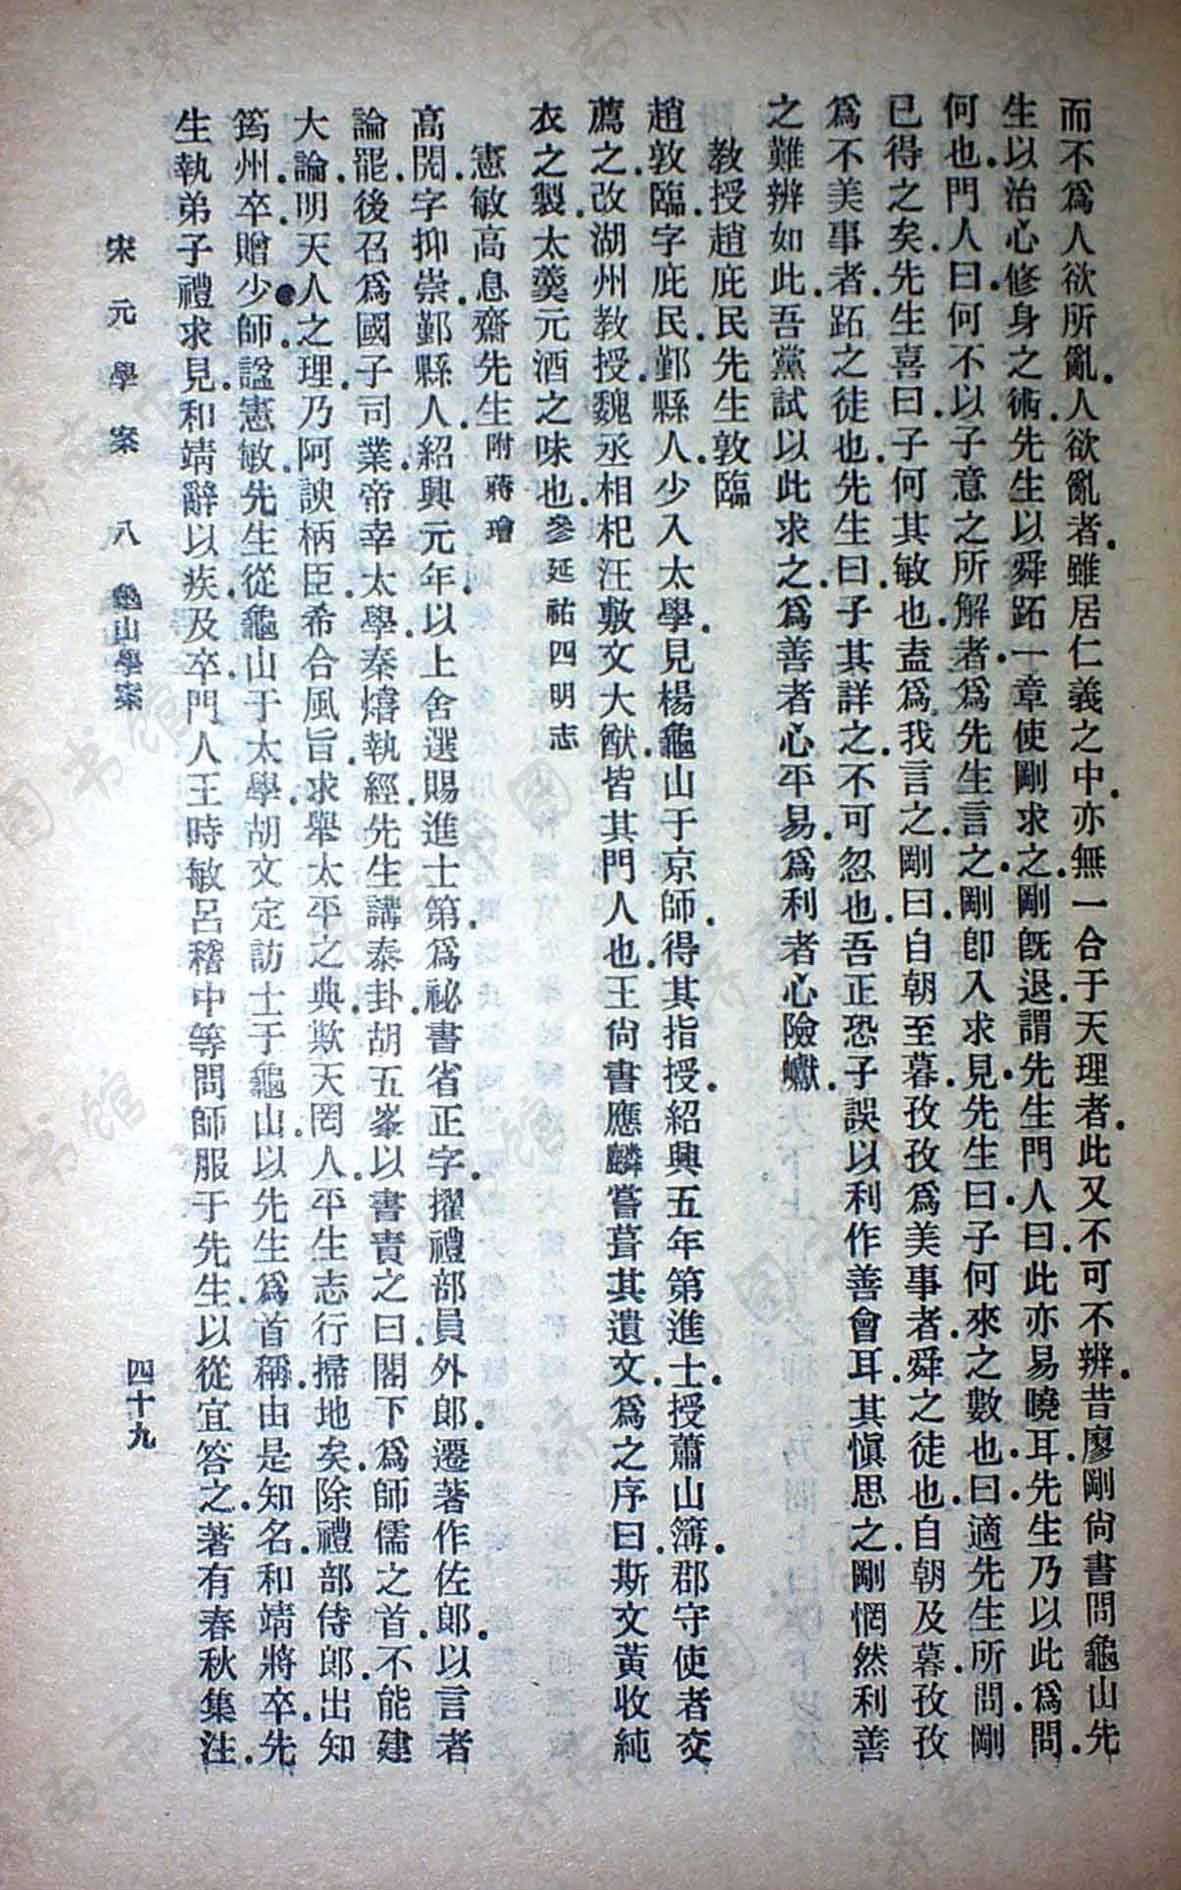 而不爲人欲所亂.人欲亂者.雖居仁義之中.亦無一合于天理者.此又不可不辨.昔廖剛尙書問龜山先
生以治心修身之術.先生以舜跖一章使剛求之.剛旣退.謂先生門人曰.此亦易曉耳.先生乃以此爲問.
何也.門人曰.何不以子意之所解者.爲先生言之.剛卽入求見.先生曰.子何來之數也.曰.適先生所問.剛
已得之矣.先生喜曰.子何其敏也.盍爲我言之.剛曰.自朝至暮.孜孜爲美事者.舜之徒也.自朝及暮.孜孜
爲不美事者.跖之徒也.先生曰.子其詳之.不可忽也.吾正恐子誤以利作善會耳.其愼思之.剛惘然.利善
之難辨如此.吾黨試以此求之.爲善者心平易.爲利者心險巇.
教授趙庇民先生敦臨
趙敦臨.字庇民.鄞縣人.少入太學.見楊龜山于京師.得其指授.紹興五年第進士.授蕭山簿.郡守使者交
薦之.改湖州教授.魏丞相杞汪敷文大猷皆其門人也.王尙書應麟嘗葺其遺文.爲之序曰.斯文黃收純
衣之製.太羹元酒之味也.參延祐四明志
憲敏高息齋先生附蔣璯
高閌.字抑崇.鄞縣人.紹興元年.以上舍選賜進士第.爲祕書省正字.擢禮部員外郎.遷著作佐郎.以言者
論罷.後召爲國子司業.帝幸太學.秦熺執經.先生講泰卦.胡五峯以書責之曰.閣下爲師儒之首.不能建
大論.明天人之理.乃阿諛柄臣.希合風旨.求舉太平之典.欺天罔人.平生志行.掃地矣.除禮部侍郎.出知
筠州.卒.贈少師.諡憲敏.先生從龜山于太學.胡文定訪士于龜山.以先生爲首稱.由是知名.和靖將卒.先
生執弟子禮求見.和靖辭以疾.及卒.門人王時敏呂稽中等問師服于先生.以從宜答之.著有春秋集注.
宋元學案 八 龜山學案 四十九